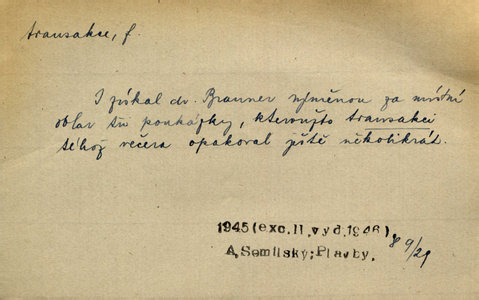 transakce, f.
I získal dr. Brauner výměnou za místní
oblav tři poukázky, kteroužto transakci
téhož večera opakoval ještě několikrát.
1945 (exc. II. vyd. 1946)
A. Semilský; Plavby. 89/29